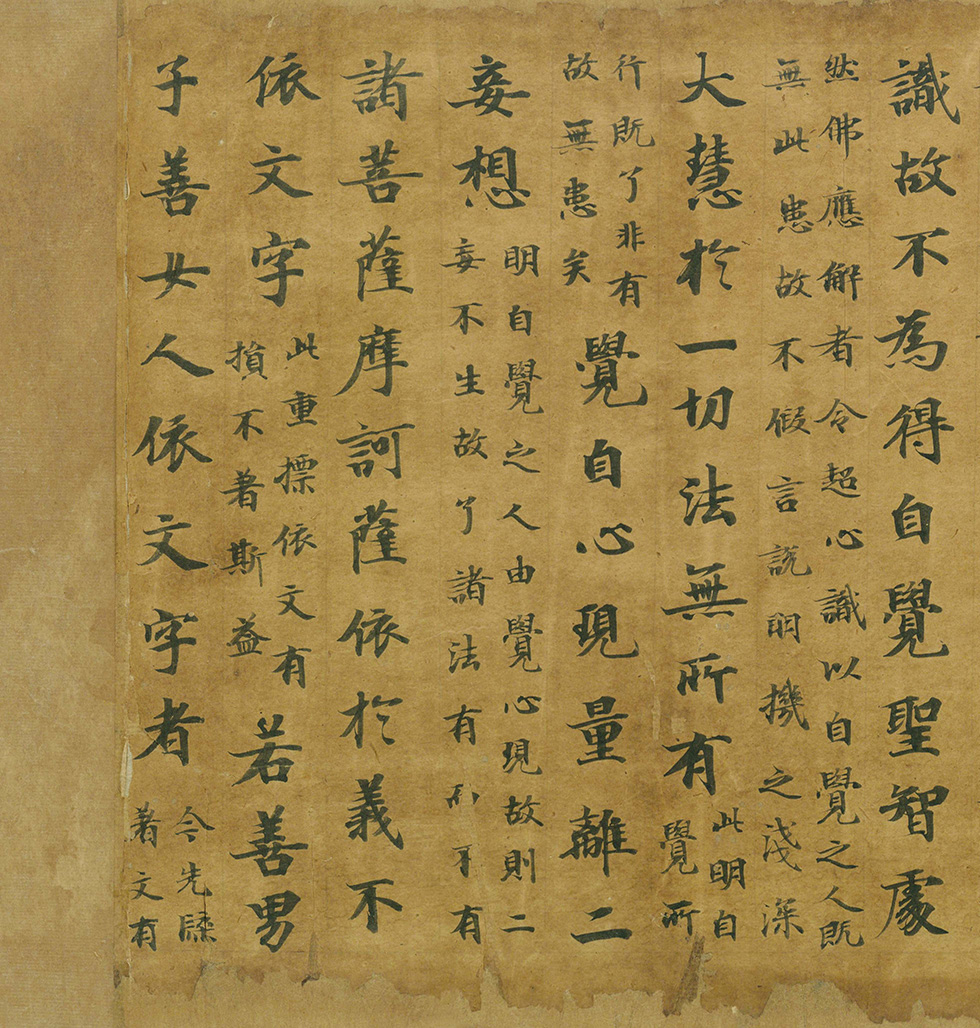 識故不為得自覺聖智處
然佛應解者令超心識以自覺之人既
無此患故不假言說明機之淺深
大慧於一切法無所有
此明自
覺所
行既了非有
故無患矣
覺自心現量離二
妄想
明自覺之人由覺心現故則二
妄不生故了諸法有而不有
諸菩薩摩訶薩依於義不
依文字
此重摽依文有
損不著斯益
若善男
子善女人依文字者
今先牒
著文有